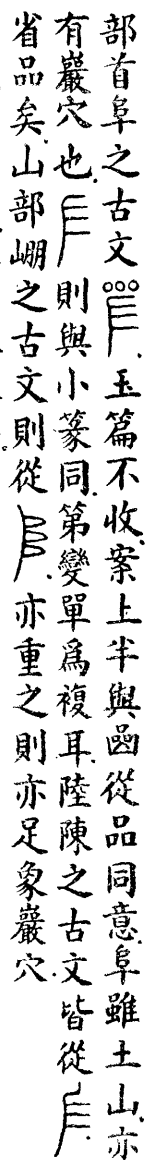 部首阜之古文玉篇不收案上半與嵒從品同意阜雖土山亦
有巖穴也則與小篆同第變單爲複耳陸陳之古文皆從
省品矣山部崩之古文則從亦重之則亦足象巖穴